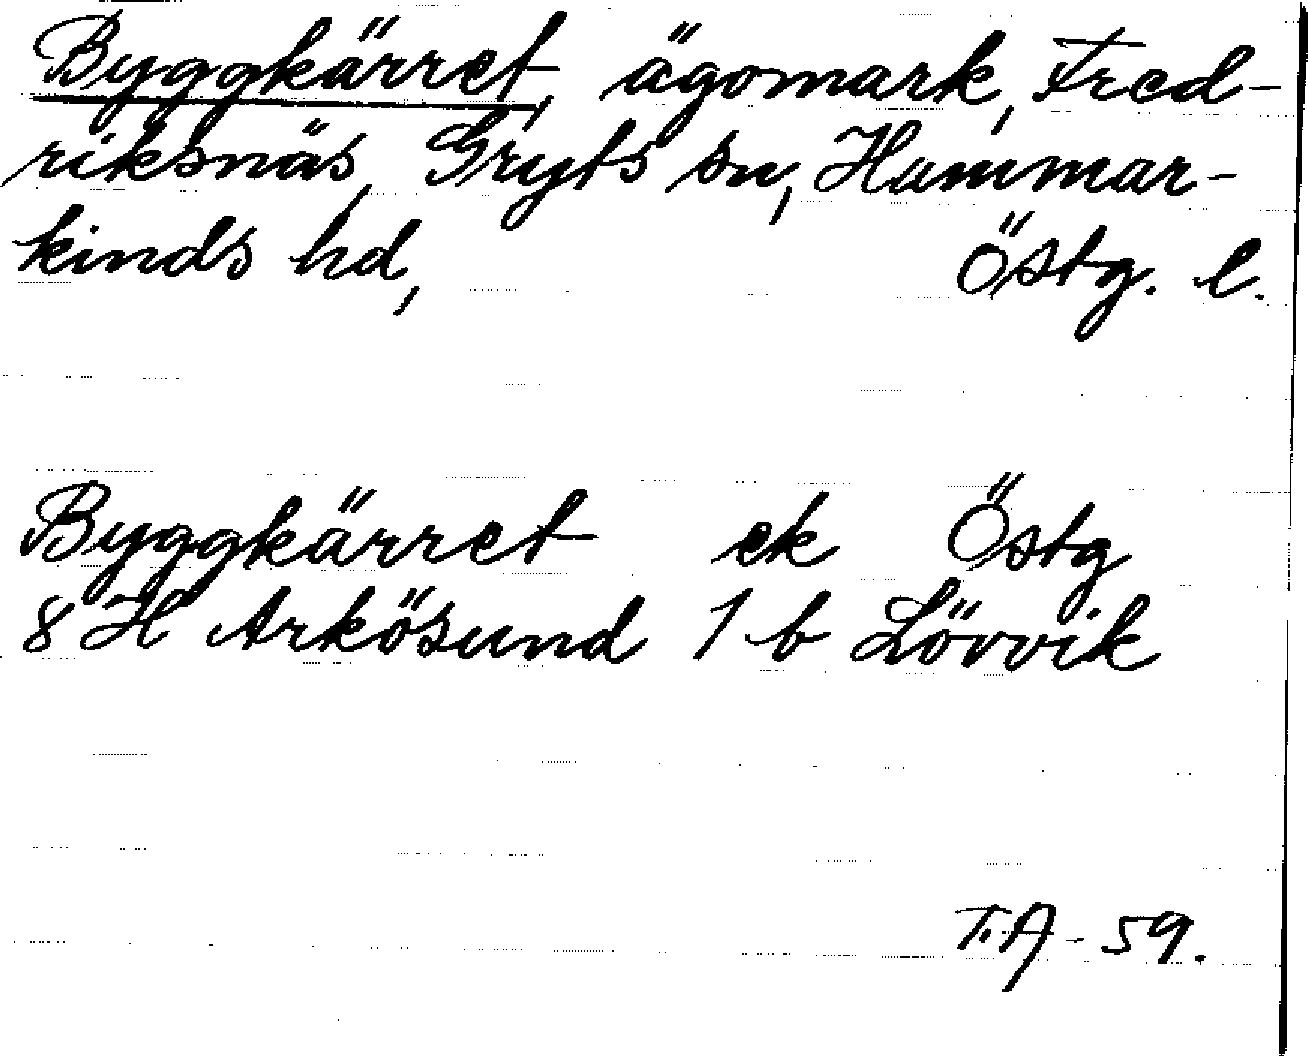 Byggkärret, ägomark, Fred-
riksnäs, Gryts sn, Hammar-
kinds hd, Östg. l.
Byggkärret ek Östg
8 H Arkösund 1 b Lövvik
T.A - 59.